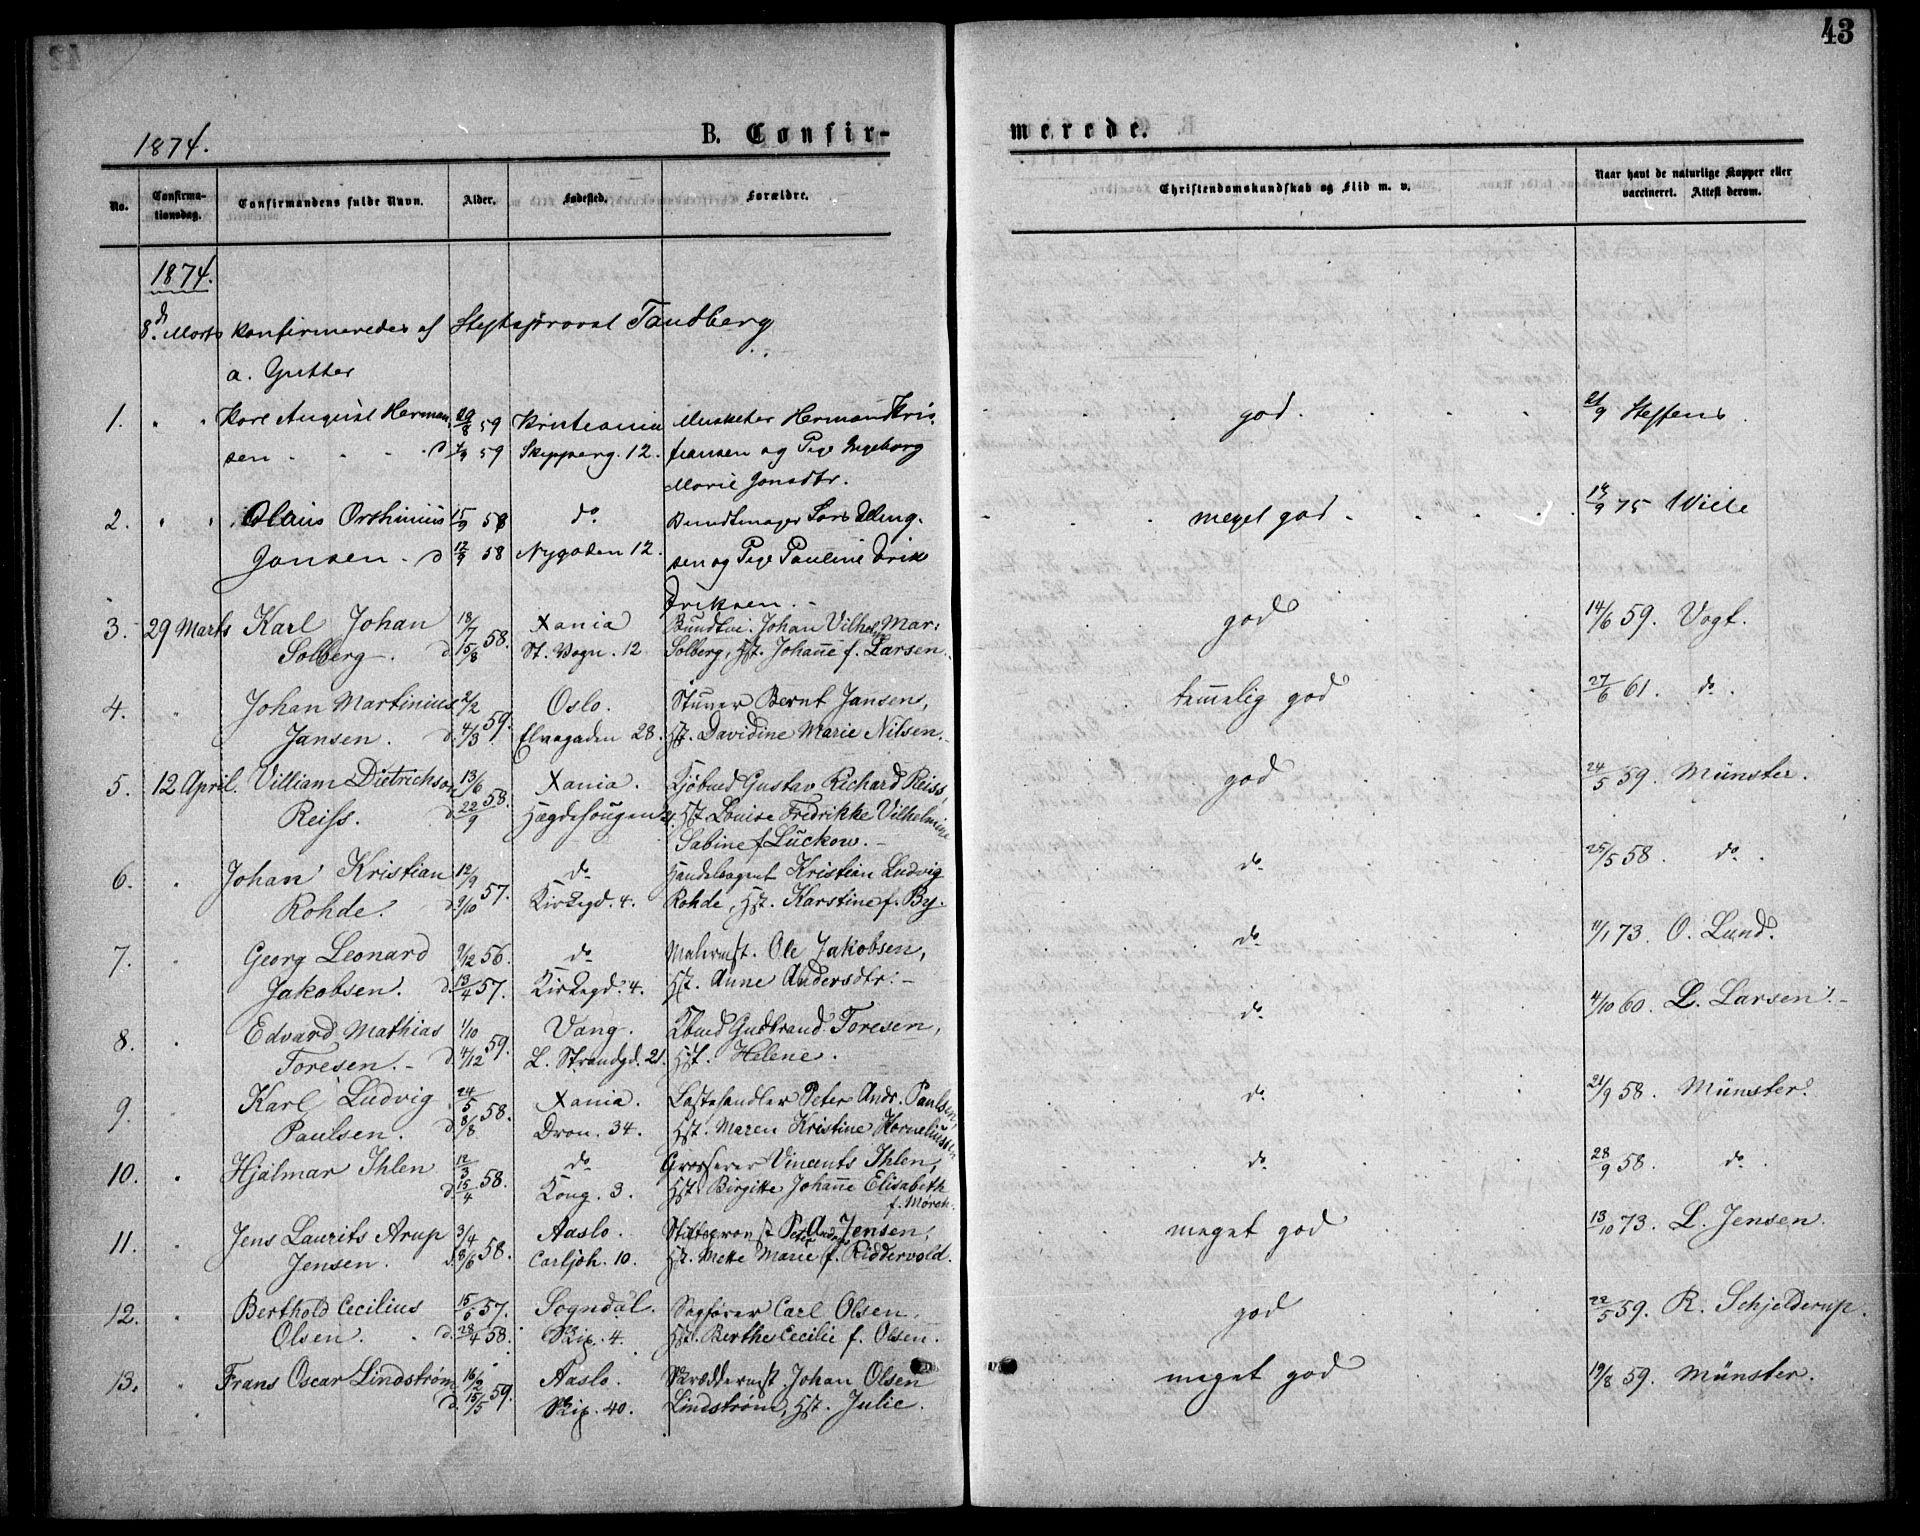 43
1874.
B. Confir-
merede.
No.
Confirma-
tionsdag.
Confirmandens fulde Navn.
Alder.
Fødested.
Forældre.
Christendomskundskab og Flid m. v.
Naar havt de naturlige Kopper eller
vaccineret. Attest derom.
1874.
8d. Marts konfirmeredes af Stiftsprovst Tandberg
a. Gutter
1. Karl August Herman 59 Kristiania Musketer Herman Kris- god. 21/9 Steffens
sen d 59 Skipperg. 12. tiansen og Pige Ingeborg
Marie Jonsdtr.
2. Olaus Orthinius 15/9 58 do meget god 75
Jansen d 12/9 58 Nygaden 12. sen og Pige Pauline
Eriksen.
3. 29 Marts Karl Johan 18/7 Xania Johan Vilhelm Mar: god 14/6 59. Vogt.
Solberg. d. 15/8 58. St. Vogn. 12 Solberg, Hst. Johanne f. Larsen.
4. Johan Martinius 2/2 Oslo. Stuver Bernt Jansens, temmelig god 27/6 61. do.
Jansen. d. 4/3 59. Elvegaden 28. Hst. Davidine Marie Nilsen.
5. 12 April. Villiam Dietrichson 13/6 Xania. Kjøbmd Gustav Richard Reiss, god 24/5 59. Münster.
Reiss. d. 22/9 58. Hægdehougen 21. Hst. Louise Fredrikke Vilhelmine
Sabine f. Lückow.
6. Johan Kristian 12/9 do Handelsagent Kristian Ludvig do 25/5 58. do.
Rohde. d. 9/10 57. Kirkegd. 4. Rohde, Hst. Karstine f. By.
7. Georg Leonard 9/12 56. do Malermst. Ole Jakobsen, do 11/1 73. O. Lund.
Jakobsen. d. 13/4 57. Kirkegd. 4. Hst. Anne Andersdtr.
8. Edvard Mathias 1/10 Vang. Gudbrand Toresen, do 4/10 60. L. Larsen.
Toresen. d. 4/12 59. L. Strandgd. 21. Hst. Helene.
9. Karl Ludvig 24/5 Xania. Lastehandler Peter Andr. Paulsen, do 21/9 58. Münster.
Paulsen. d. 8/8 58. Dron. 34. Hst. Maren Kristine Korneliussen
10. Hjalmar Ihlen 12/3 do Grosserer Vincents Ihlen, do 28/9 58. do.
d. 15/4 58. Kong. 3. Hst. Birgitte Johanne Elisabeth
f. Mørch.
11. Jens Laurits Arup 3/4 Aaslo. Stiftsprovst Peter Andreas Jensen, meget god 13/10 73. L. Jensen.
Jensen. d. 8/6 58. Carljoh. 10. Hst. Mette Marie f. Riddervold.
12. Berthold Cecilius 15/6 57. Sogndal. Sagfører Carl Olsen, god 22/5 59. R. Schjelderup.
Olsen. d. 28/4 58. Skip. 4. Hst. Berthe Cecilie f. Olsen.
13. Frans Oscar Lindstrøm 16/2 Aaslo. Skræddermst Johan Olsen meget god 19/8 59. Münster.
d. 18/5 59. Skip. 40. Lindstrøm, Hst. Julie.